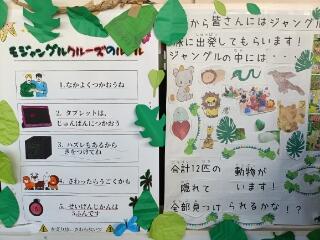 ジャングルクルーズのルール
1.なかよくつかおうね
2. タブレットは、
じゅんばんにつかおう
3. ハズレもあるから
きをつけてね
4. さわったらうごくかも
5. せいげんじかんは
5ふんです
から皆さんにはジャングル
に出発してもらいます!
ジャングルの中には・・・
合計12匹の 動物が
隠れて います!
全部見つけられるかな!?